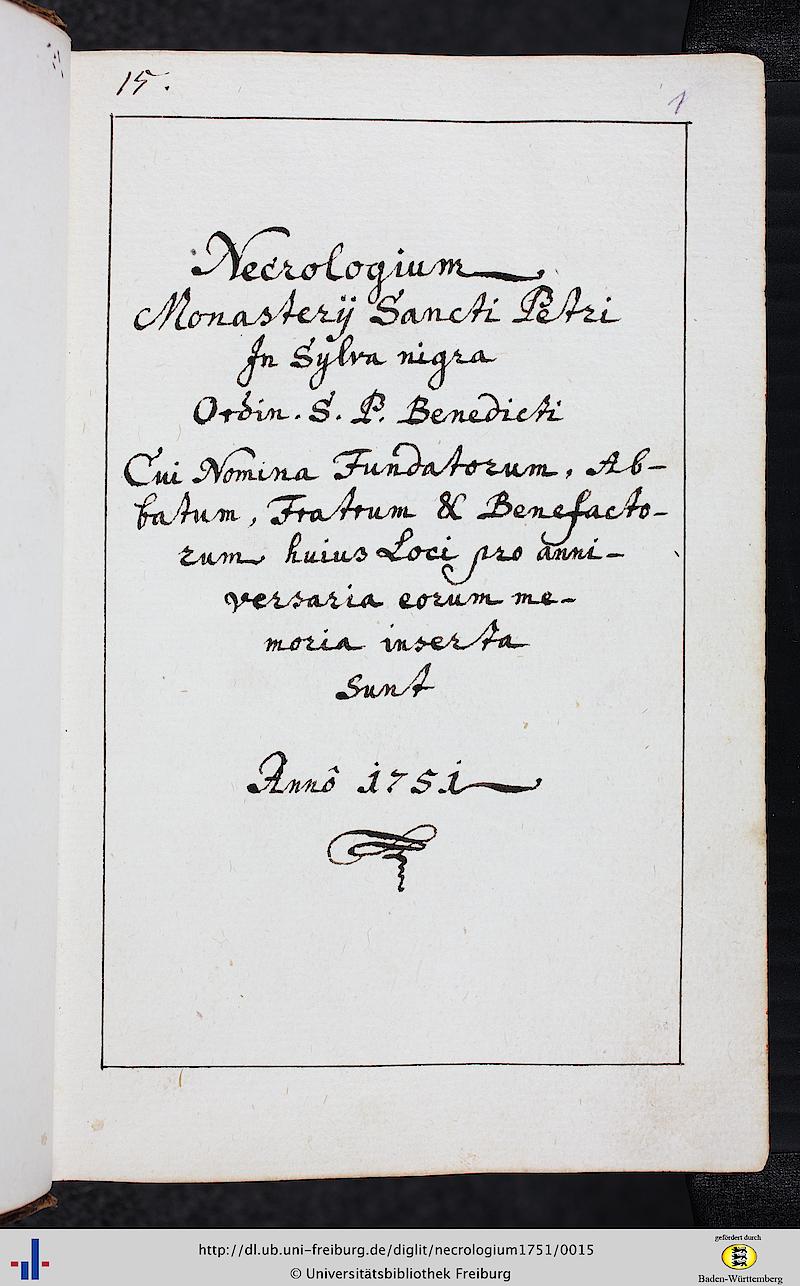 15.
1
Necrologium
Monasterij Sancti Petri
In Sylva nigra
Ordin. S. P. Benedicti
Cui Nomina Fundatorum, Ab-
batum, Fratrum & Benefacto-
rum huius Loci pro anni-
versaria eorum me-
moria inserta
sunt
Annô 1751
http://dl.ub.uni-freiburg.de/diglit/necrologium1751/0015
© Universitätsbibliothek Freiburg
gefördert durch
Baden-Württemberg